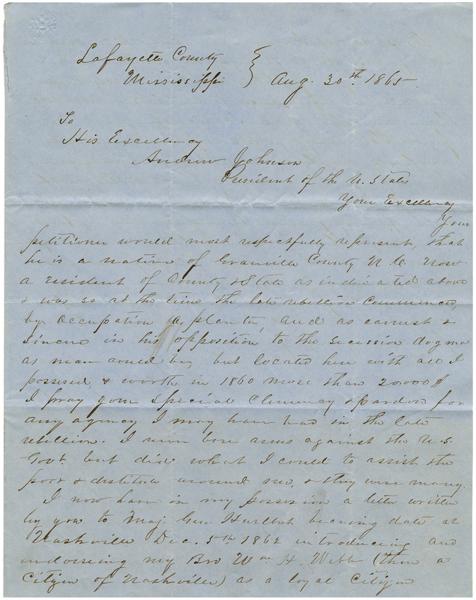 Lafayette County
Mississippi } Aug. 30th 1865
To
His Excellency
Andrew Johnson
President of the U. States
Your Excellency
Your
petitioner would most respectfully represent, that
he is a native of Granville County N.C. Now
a resident of County & State as indicated above
& was so at the time the late rebellion commenced,
by occupation a planter, and as earnest &
sincere in his opposition to the secession dogma
as man could be, but located here with all I
possessed, & worth in 1860 more than 20,000$
I pray your special clemency & pardon for
any agency I may have had in the late
rebellion. I never bore arms against the U.S.
Govt. but did what I could to assist the
poor & destitute around me, & they were many.
I now have in my possession a letter written
by you to Maj. Genl Hurlbut bearing date at
Nashville Dec. 5th 1862 introducing and
endorsing my Bro Wm H. Webb (then a
Citizen of Nashville) as a loyal Citizen